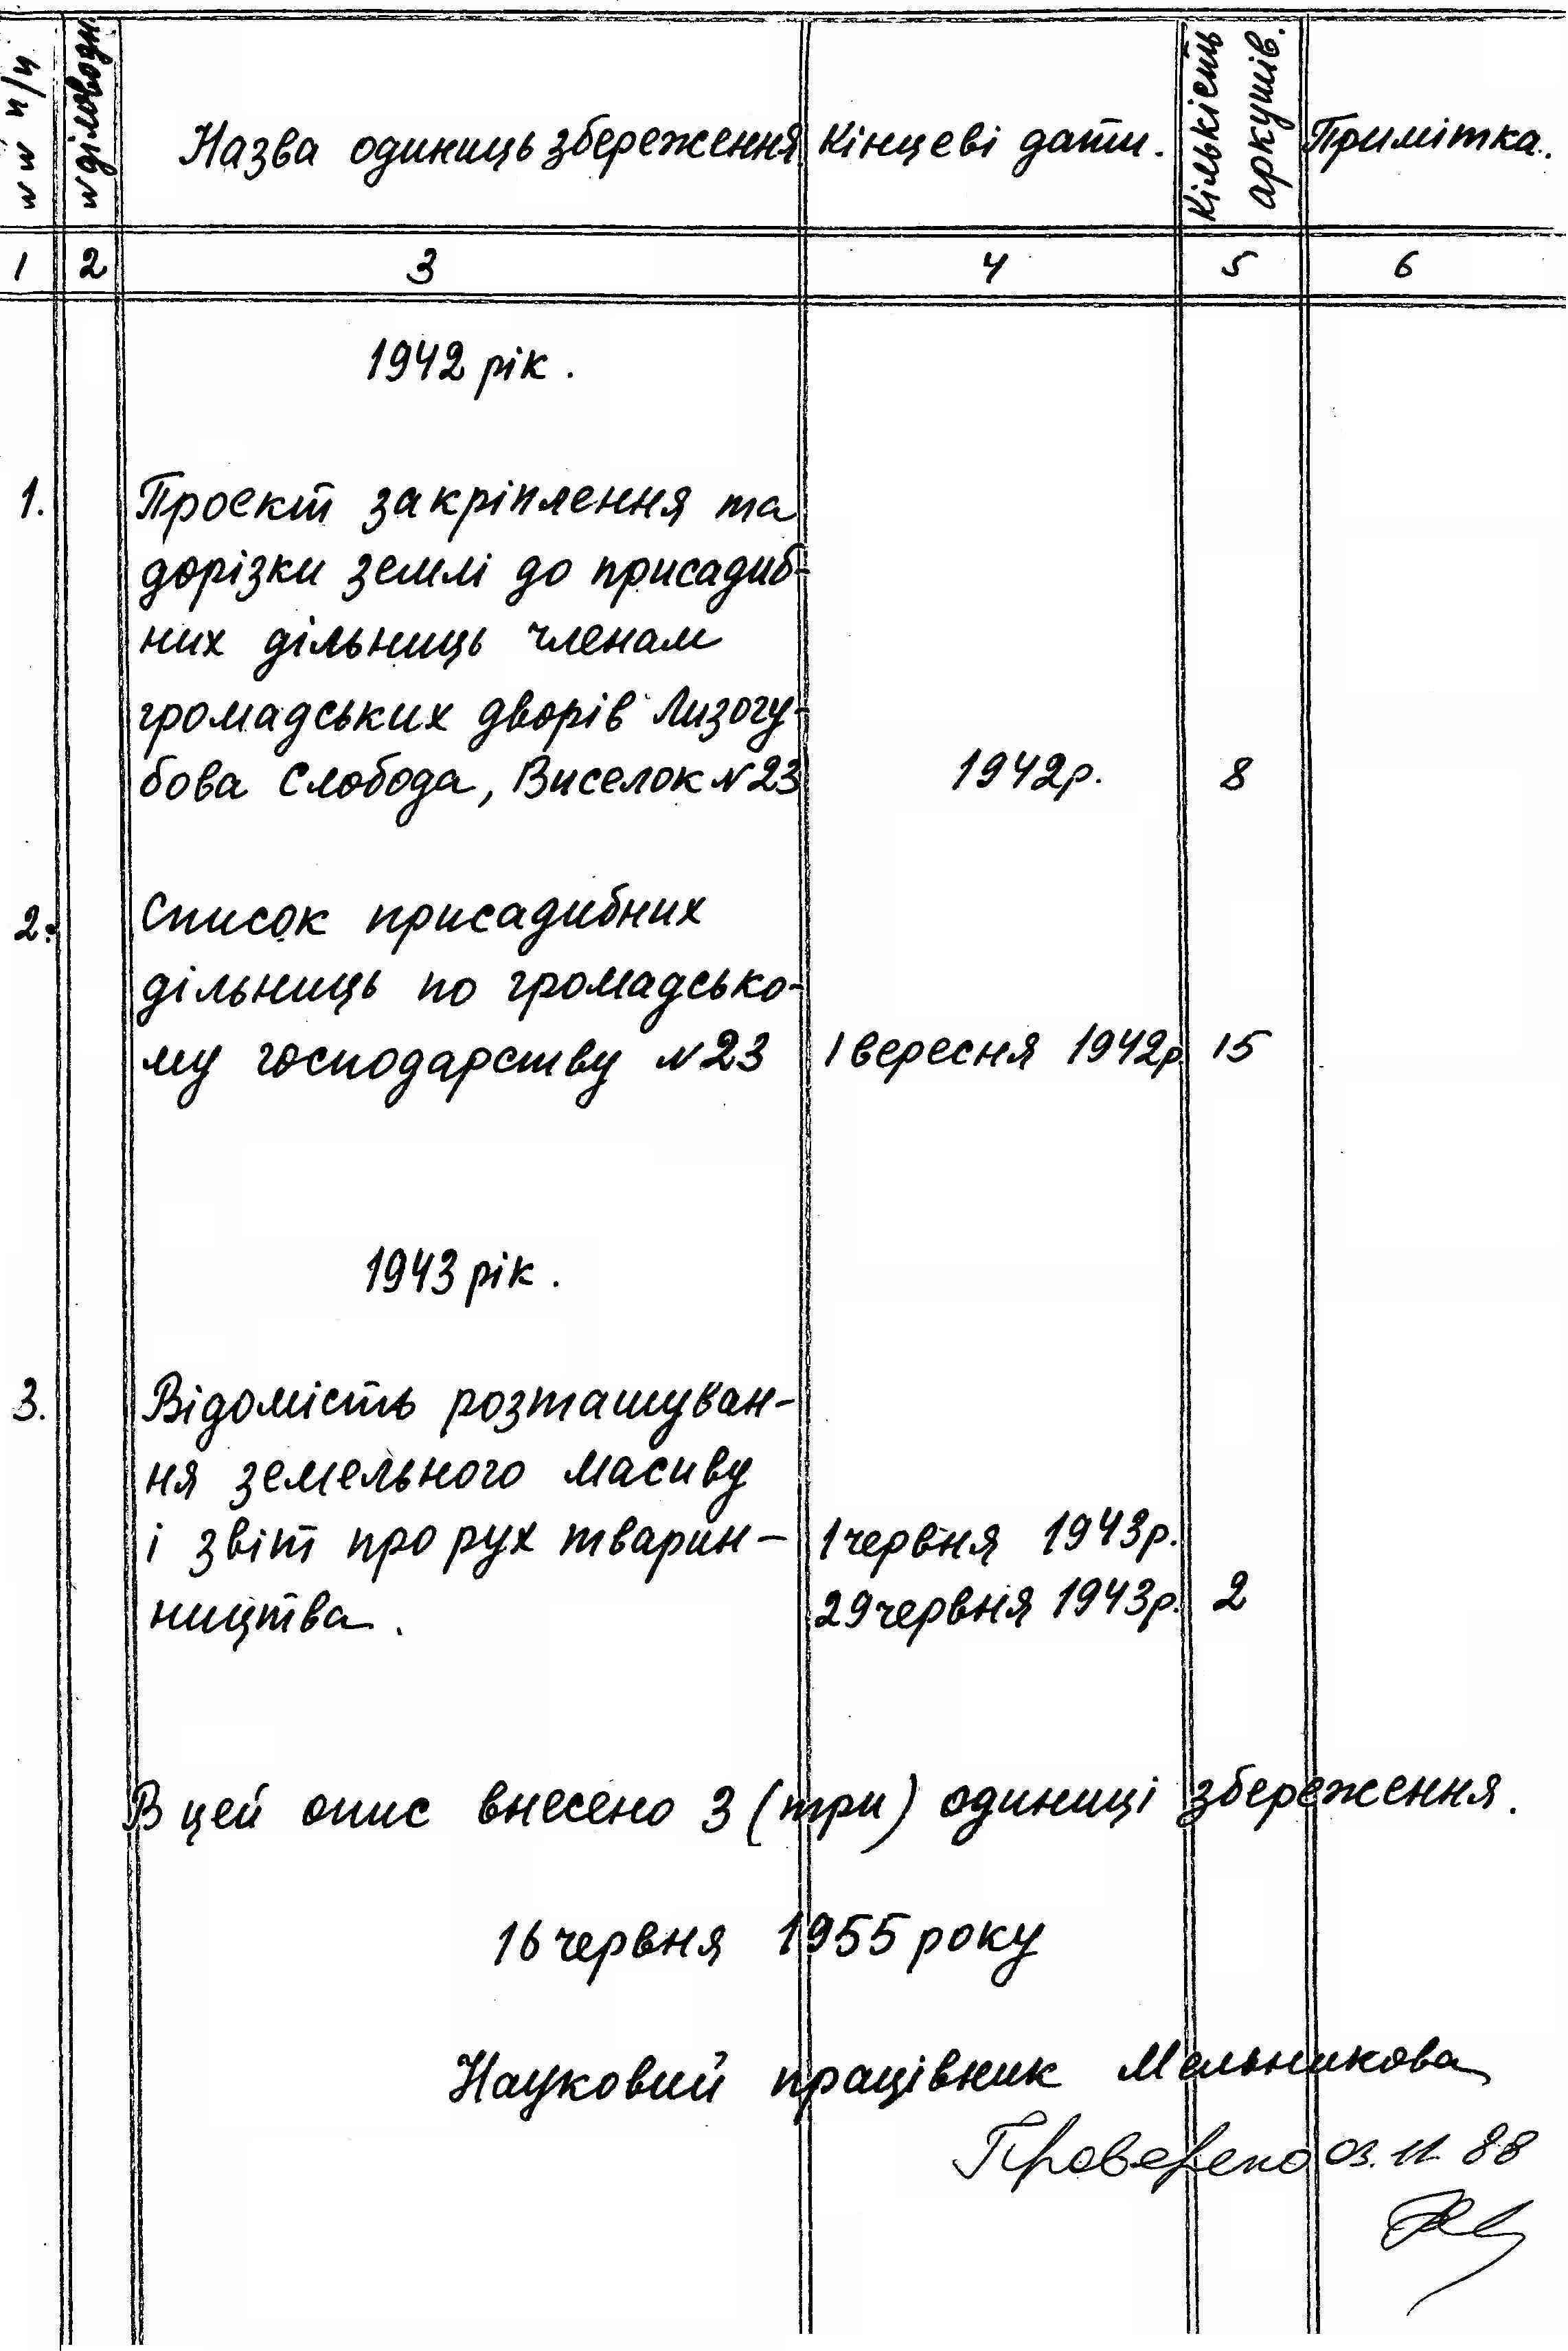 №№ п/п
№ діловодн.
Назва одиниць збереження
Кінцеві дати.
Кількість
аркушів.
Примітка.
1 2 3 4 5 6
1942 рік.
1. Проект закріплення та
дорізки землі до присадиб-
них дільниць членам
громадських дворів Лизогу-
бова Слобода, Виселок №23 1942р. 8
2. Список присадибних
дільниць по громадсько-
му господарству №23 1 вересня 1942р. 15
1943 рік.
3. Відомість розташуван-
ня земельного масиву
і звіт про рух тварин- 1 червня 1943р.
ництва. 29 червня 1943р. 2
В цей опис внесено 3 (три) одиниці збереження.
16 червня 1955 року
Науковий працівник Мельникова
Проверено 03.11.88